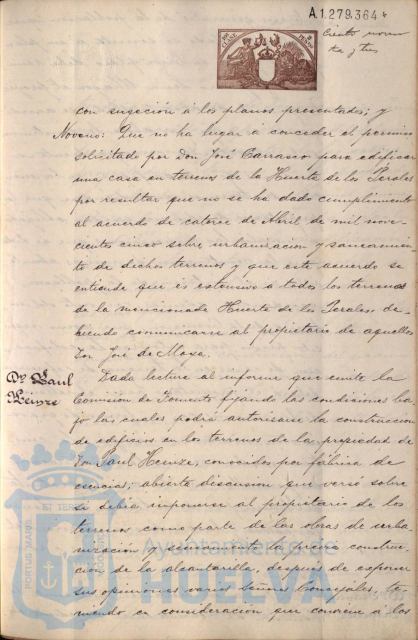 A.1.279.364
Ciento noven
ta y tres
con sugeción á los planos presentados; y
Noveno: Que no ha lugar a conceder el permiso
solicitado por Don José Carrasco para edificar
una casa en terrenos de la Huerta de los Perales
por resultar que no se ha dado cumplimiento
al acuerdo de catorce de Abril de mil nove-
cientos cinco sobre urbanización y saneamien-
to de dichos terrenos y que este acuerdo se
entiende que es extensivo a todos los terrenos
de la mencionada Huerta de los Perales de-
biendo comunicarse al propietario de aquellos
Don José de Moya.
Dn Paul
Heinze
Dada lectura al informe que emite la
Comisión de Fomento fijando las condiciones ba-
jo las cuales podrá autorizarse la construcción
de edificios en los terrenos de la propiedad de
Don Paul Heinze, conocidos por fábrica de
esencias; abierta discusión que versó sobre
si debía imponerse al propietario de los
terrenos como parte de las obras de urba-
nización y saneamiento la previa construc-
ción de la alcantarilla, después de exponer
sus opiniones varios Señores Concejales, te-
niendo en consideración que conviene á los
PORTUS MARIS
ET TERRAE
Ayuntamiento de
HUELVA